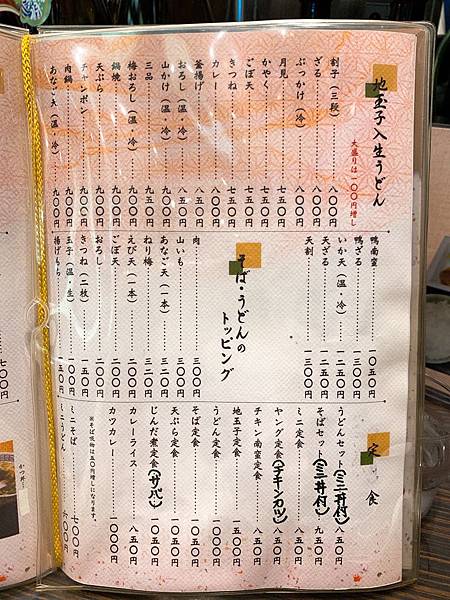 地玉子入生うどん
大盛りは一〇〇円増し
割子（三段）……八〇〇円
ざる……八〇〇円
ぶっかけ（冷）……八〇〇円
月見……七五〇円
かやく……七五〇円
ごぼ天……七五〇円
きつね……七五〇円
カレー……八五〇円
釜揚げ……八五〇円
おろし（温・冷）……八五〇円
山かけ（温・冷）……九五〇円
三品……九五〇円
梅おろし（温・冷）……九〇〇円
鍋焼……九〇〇円
天ぷら……九〇〇円
チャンポン……九〇〇円
肉鍋……九〇〇円
あなご天（温・冷）……九〇〇円
鴨南蛮……一〇五〇円
鴨ざる
いか天（温・冷）……一二五〇円
天ざる……一二〇〇円
天割……一三〇〇円
そば・うどんのトッピング
肉……三〇〇円
山いも……三〇〇円
あなご天（一本）……三二〇円
ねり梅……三二〇円
えび天（一本）……二〇〇円
ごぼ天……二〇〇円
おろし……二〇〇円
きつね（二枚）……一五〇円
玉子（温・生）……一〇〇円
揚げもち……一五〇円
定食
うどんセット（ミニ丼付）……八五〇円
そばセット（ミニ丼付）……九五〇円
ミニ定食……八五〇円
ヤング定食（チキンカツ）……八五〇円
チキン南蛮定食……八五〇円
地玉子定食……一五〇円
うどん定食……一〇〇〇円
そば定食……一一〇〇円
天ぷら定食……一一五〇円
じんだ煮定食（サバ）……八五〇円
カレーライス……八五〇円
カツカレー……一〇〇〇円
※そば吸物は五〇円増しになります。
ミニそば……七〇〇円
ミニうどん……六〇〇円
かつ丼
七〇〇円